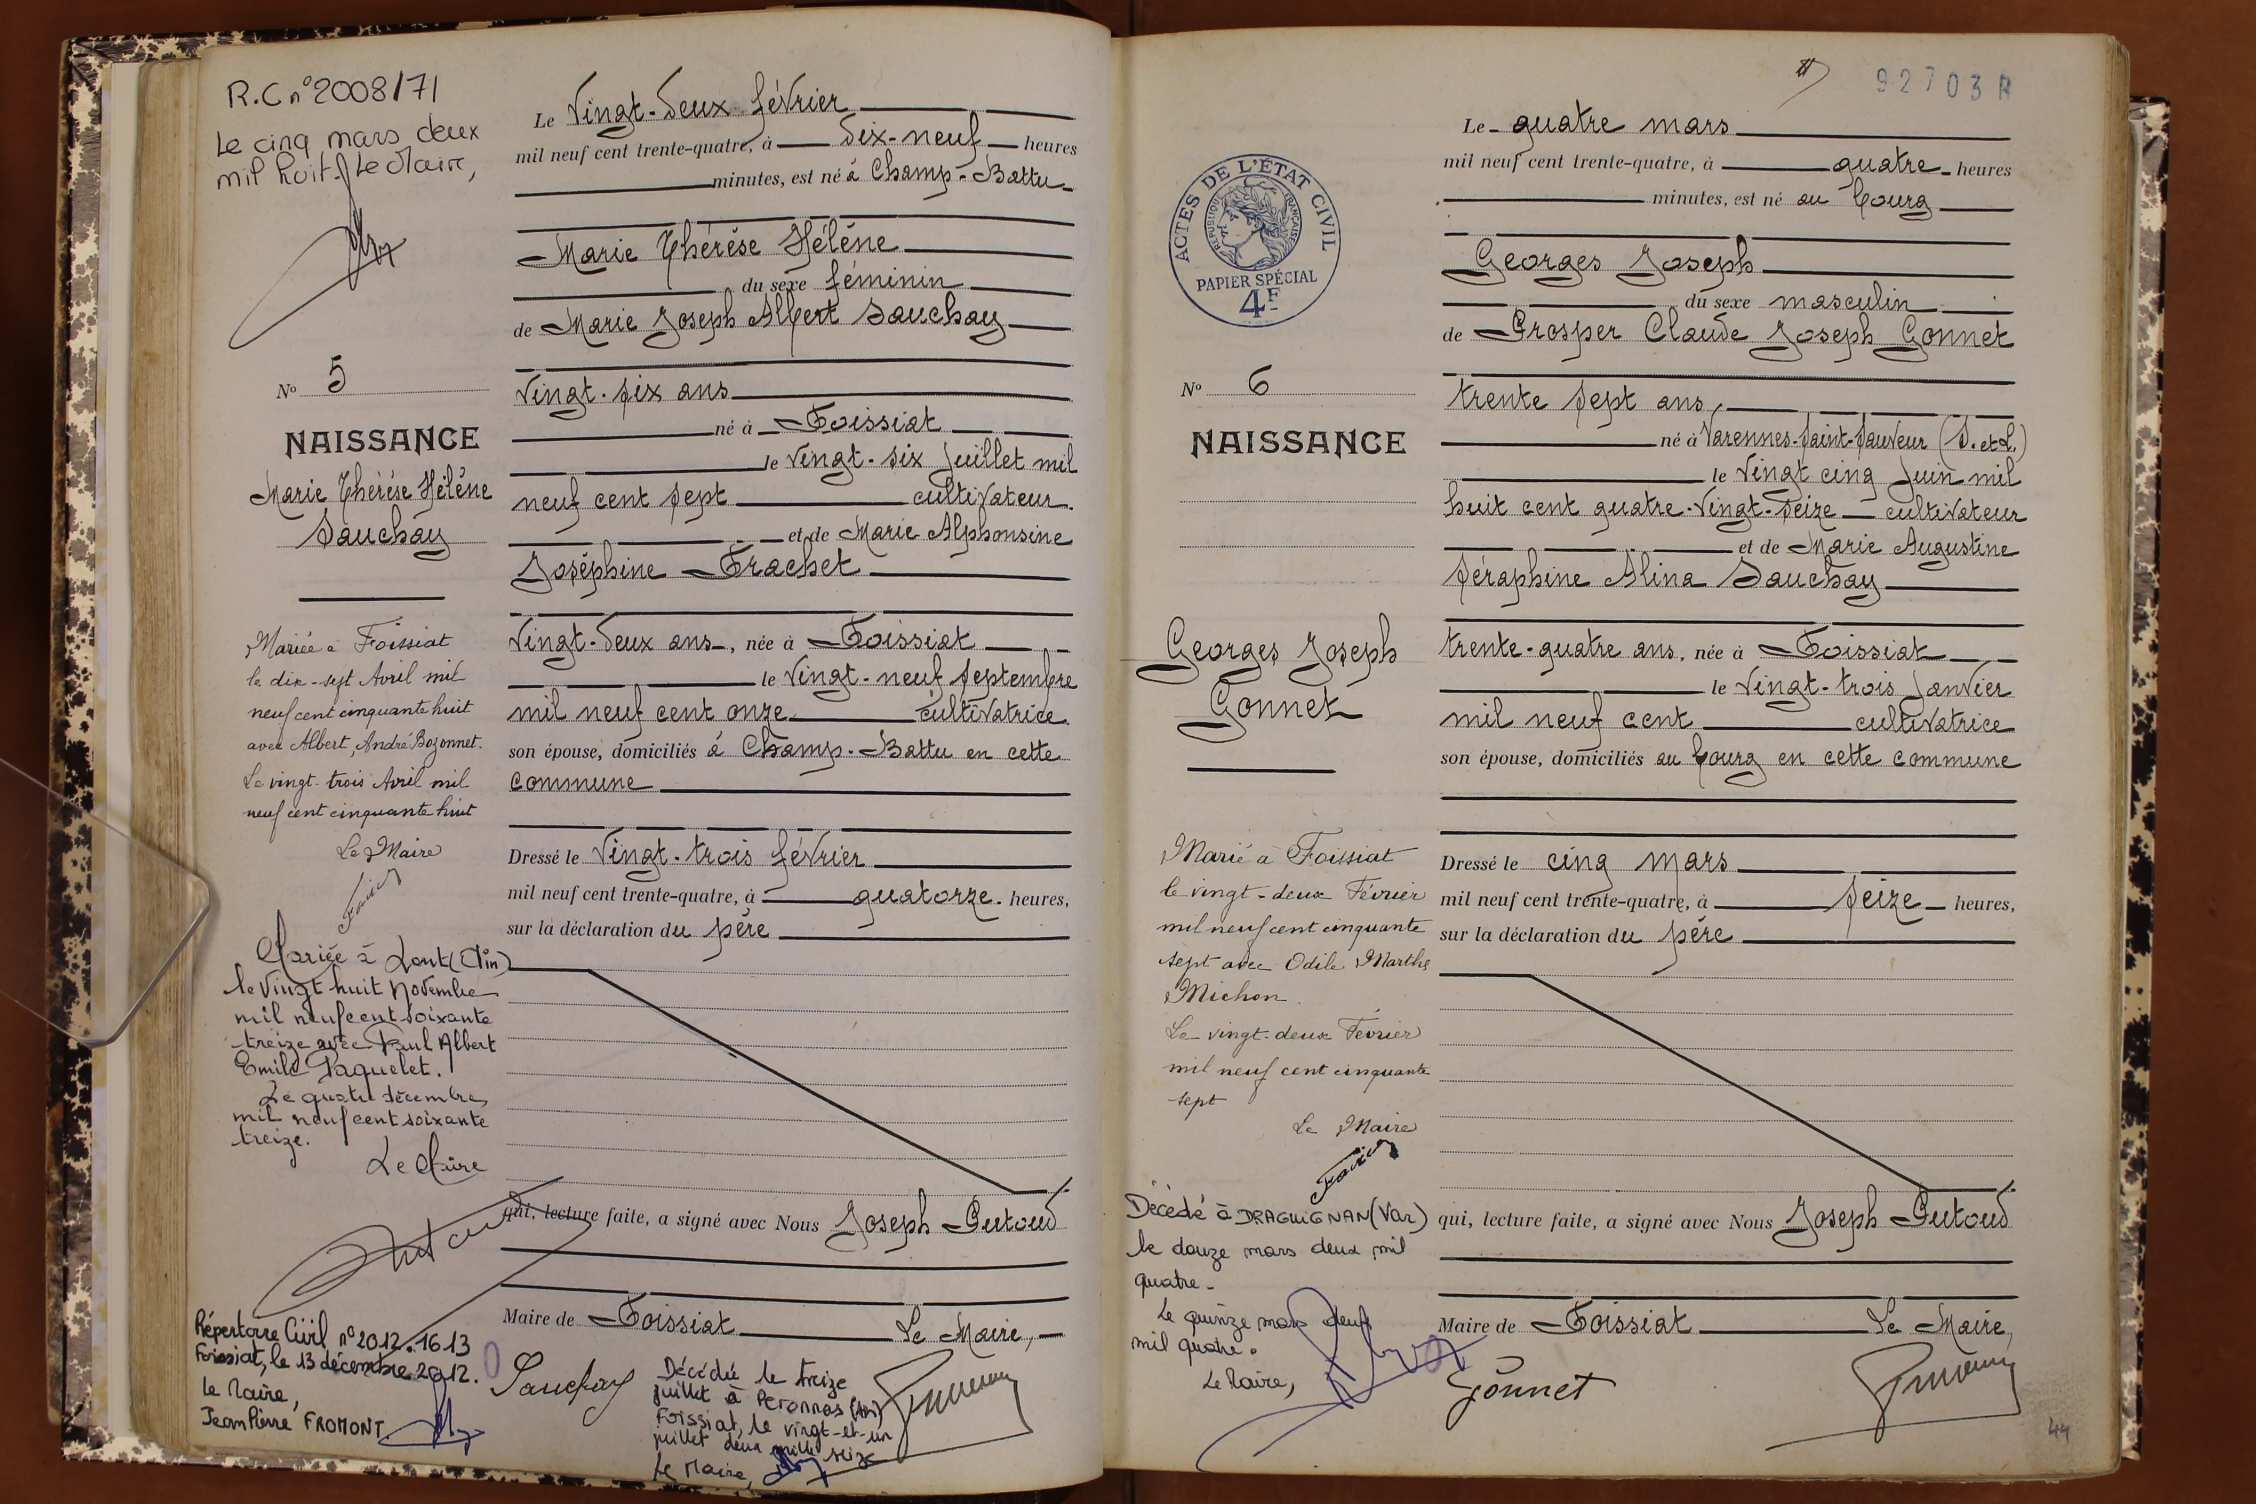 R.C n° 2008/71
Le cinq mars deux
mil huit. Le Maire,
N° 5
NAISSANCE
Marie Thérèse Hélène
Sauchay
Mariée à Foissiat
le dix-sept Avril mil
neuf cent cinquante huit
avec Albert, André Bozonnet.
Le vingt-trois Avril mil
neuf cent cinquante huit
Le Maire
Mariée à Lent (Ain)
le vingt huit novembre
mil neuf cent soixante
treize avec Paul Albert
Emile Paquelet.
Le quatre décembre
mil neuf cent soixante
treize.
Le Maire
Répertoire Civil n° 2012.1613
Foissiat, le 13 décembre 2012.
Le Maire,
Jean Pierre FROMONT
Le Vingt-deux février
mil neuf cent trente-quatre, à dix-neuf heures
minutes, est né à Champ-Battu
Marie Thérèse Hélène
du sexe féminin
de Marie Joseph Albert Sauchay
vingt-six ans
né à Foissiat
le vingt-six juillet mil
neuf cent sept cultivateur.
et de Marie Alphonsine
Joséphine Frachet
vingt-deux ans, née à Foissiat
le vingt-neuf septembre
mil neuf cent onze cultivatrice
son épouse, domiciliés à Champ-Battu en cette
commune
Dressé le vingt-trois février
mil neuf cent trente-quatre, à quatorze heures,
sur la déclaration du père
qui, lecture faite, a signé avec Nous Joseph Putoud
Maire de Foissiat Le Maire,
Sauchay
Décédée le treize
juillet à Peronnas (Ain)
Foissiat, le vingt-et-un
juillet deux mille seize
Le Maire,
92703 R
ACTES DE L'ÉTAT CIVIL
RÉPUBLIQUE FRANÇAISE
PAPIER SPÉCIAL
4F
N° 6
NAISSANCE
Georges Joseph
Gonnet
Marié à Foissiat
le vingt-deux Février
mil neuf cent cinquante
sept avec Odile Marthe
Michon.
Le vingt-deux Février
mil neuf cent cinquante
sept
Le Maire
Décédé à DRAGUIGNAN (Var)
le douze mars deux mil
quatre.
Le quinze mars deux
mil quatre.
Le Maire,
Le quatre mars
mil neuf cent trente-quatre, à quatre heures
minutes, est né au bourg
Georges Joseph
du sexe masculin
de Prosper Claude Joseph Gonnet
trente sept ans,
né à Varennes-Saint-Sauveur (S. et L.)
le vingt cinq juin mil
huit cent quatre-vingt-seize cultivateur
et de Marie Augustine
Séraphine Alina Sauchay
trente-quatre ans, née à Foissiat
le vingt-trois janvier
mil neuf cent cultivatrice
son épouse, domiciliés au bourg en cette commune
Dressé le cinq mars
mil neuf cent trente-quatre, à seize heures,
sur la déclaration du père
qui, lecture faite, a signé avec Nous Joseph Putoud
Maire de Foissiat Le Maire,
Gonnet
44